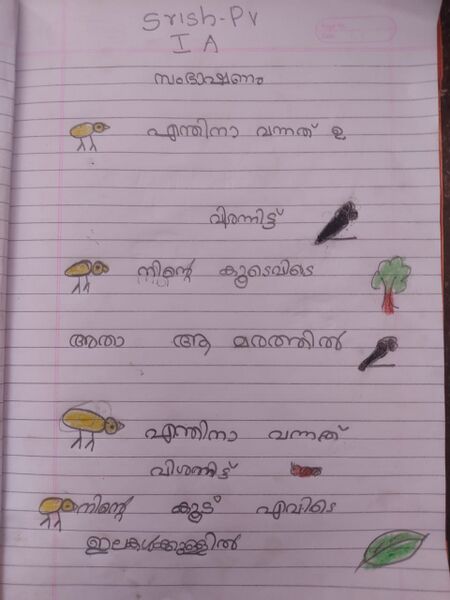 Srish-PV
I A
സംഭാഷണം
എന്തിനാ വന്നത് ഉ
വിശന്നിട്ട്
നിന്റെ കൂടെവിടെ
അതാ ആ മരത്തിൽ
എന്തിനാ വന്നത്
വിശന്നിട്ട്
നിന്റെ കൂട് എവിടെ
ഇലകൾക്കുള്ളിൽ